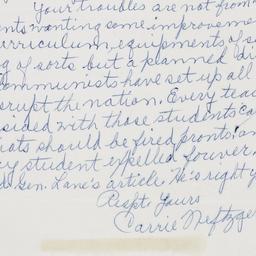 Your troubles are not from
ents wanting some improveme
urriculum, equipments of s
g of sorts but a planned di
ommunists have set up all
srupt the nation. Every tea
sided with those students ca
iots should be fired pronto! an
y student expelled forever.
d Gen. Lane's article. He's right y
Respt. Yours
Carrie Neftzge